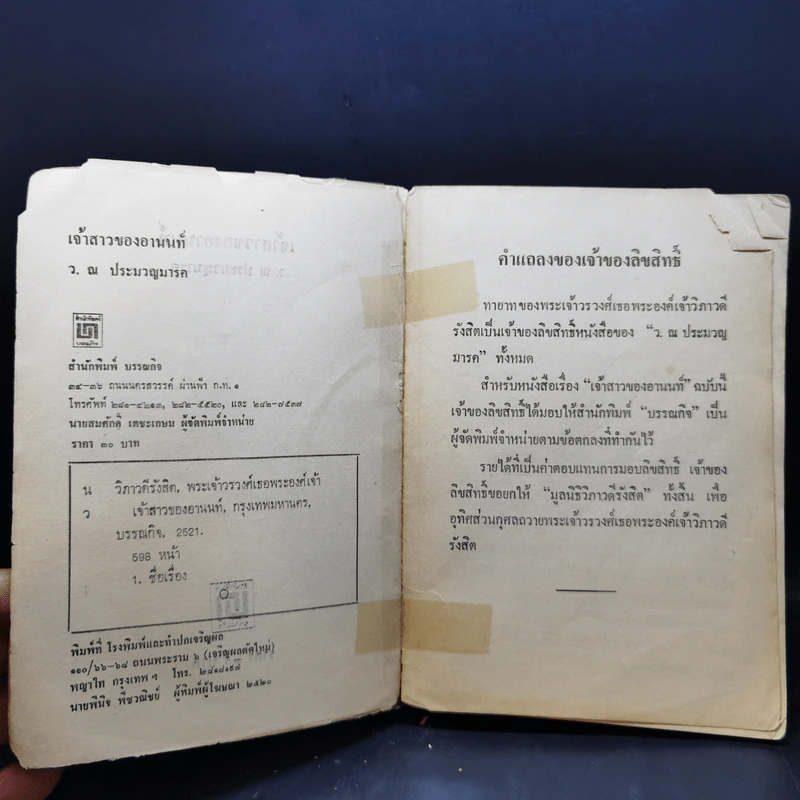 เจ้าสาวของอานนท์
ว. ณ ประมวญมารค
สำนักพิมพ์
บรรณกิจ
สำนักพิมพ์ บรรณกิจ
๓๔-๓๖ ถนนนครสวรรค์ ผ่านฟ้า ก.ท. ๑
โทรศัพท์ ๒๘๑-๔๒๑๓, ๒๘๒-๕๕๒๐, และ ๒๘๒-๗๕๓๗
นายสมศักดิ์ เตชะเกษม ผู้จัดพิมพ์จำหน่าย
ราคา ๓๐ บาท
น วิภาวดีรังสิต, พระเจ้าวรวงศ์เธอพระองค์เจ้า
ว เจ้าสาวของอานนท์, กรุงเทพมหานคร,
บรรณกิจ, 2521.
598 หน้า
1. ชื่อเรื่อง
พิมพ์ที่ โรงพิมพ์และทำปกเจริญผล
๑๑๐/๖๖-๖๘ ถนนพระราม ๖ (เจริญผลตัดใหม่)
พญาไท กรุงเทพ ฯ โทร. ๒๘๑๘๑๙๗
นายพินิจ พืชวณิชย์ ผู้พิมพ์ผู้โฆษณา ๒๕๒๐
คำแถลงของเจ้าของลิขสิทธิ์
ทายาทของพระเจ้าวรวงศ์เธอพระองค์เจ้าวิภาวดี
รังสิตเป็นเจ้าของลิขสิทธิ์หนังสือของ “ว. ณ ประมวญ
มารค” ทั้งหมด
สำหรับหนังสือเรื่อง “เจ้าสาวของอานนท์” ฉบับนี้
เจ้าของลิขสิทธิ์ได้มอบให้สำนักพิมพ์ “บรรณกิจ” เป็น
ผู้จัดพิมพ์จำหน่ายตามข้อตกลงที่ทำกันไว้
รายได้ที่เป็นค่าตอบแทนการมอบลิขสิทธิ์ เจ้าของ
ลิขสิทธิ์ขอยกให้ “มูลนิธิวิภาวดีรังสิต” ทั้งสิ้น เพื่อ
อุทิศส่วนกุศลถวายพระเจ้าวรวงศ์เธอพระองค์เจ้าวิภาวดี
รังสิต